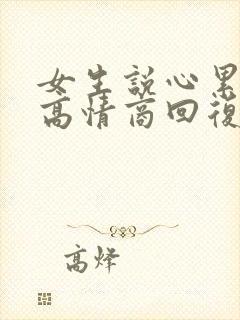 女生説心累
高情商回復
高烽